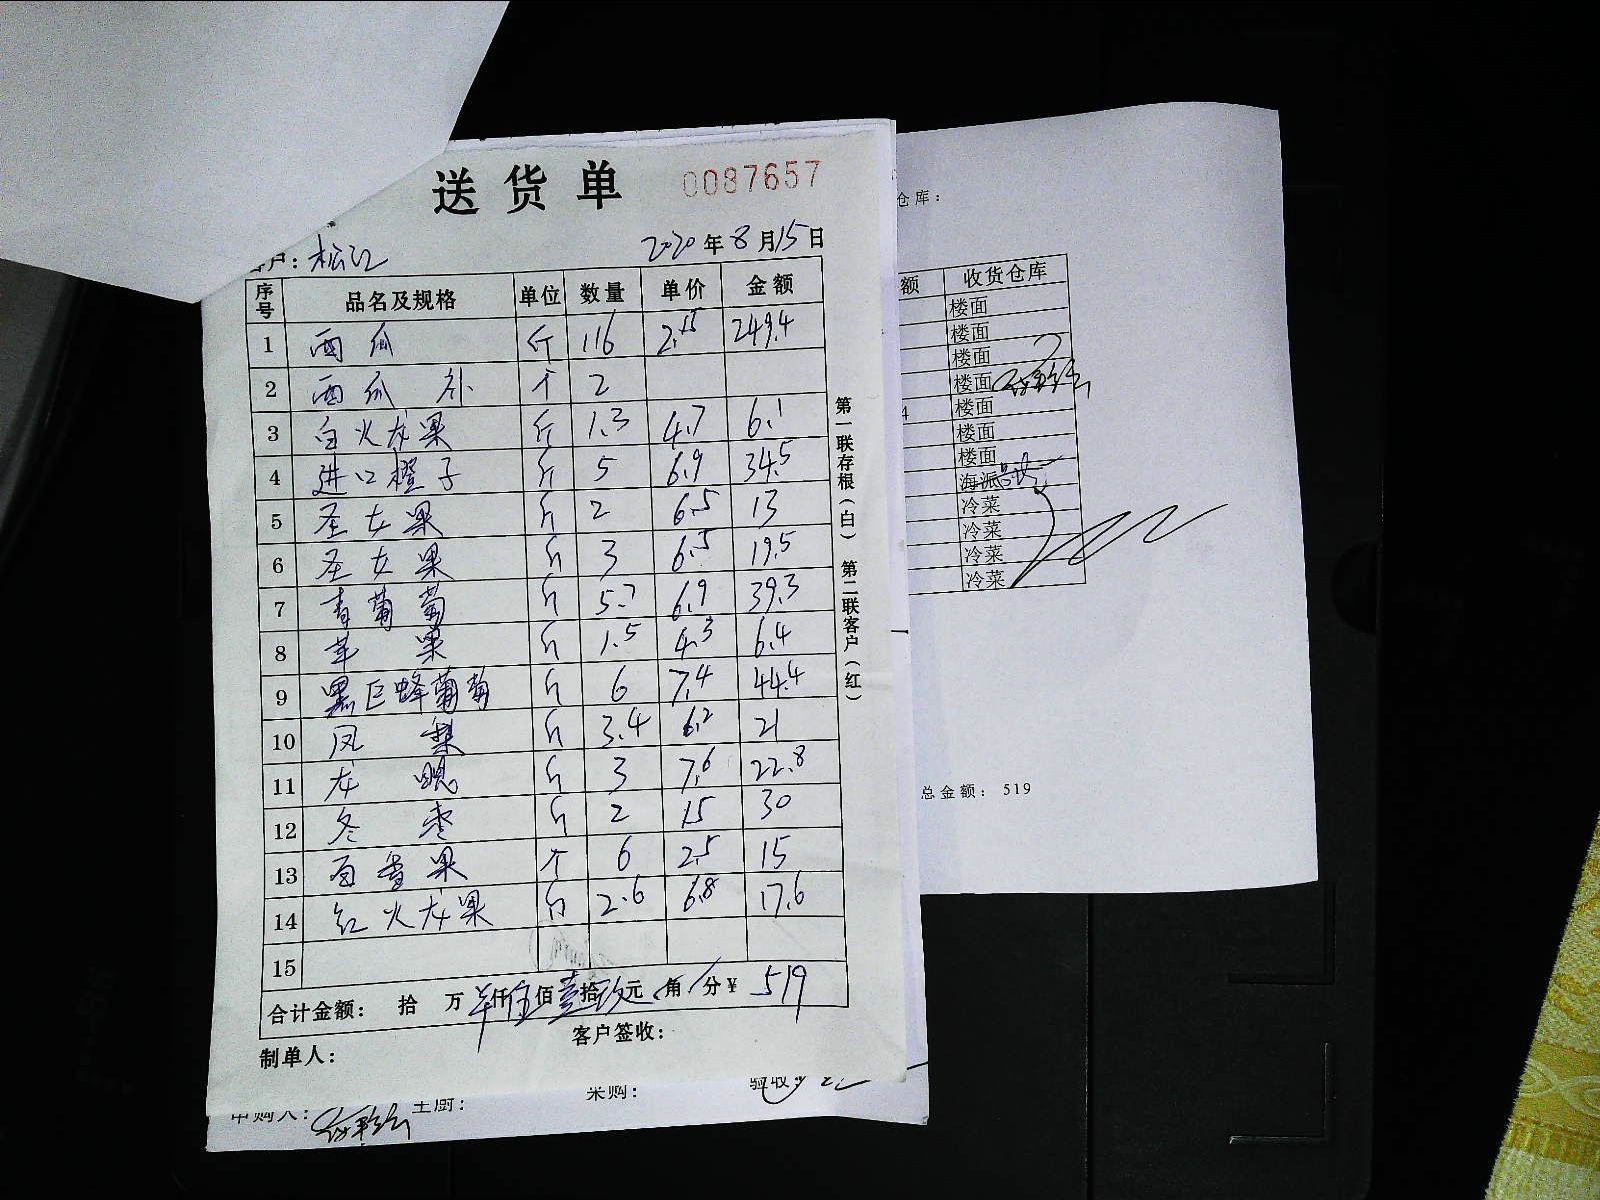 送货单 0087657
客户：松江 2020年8月15日
序号 品名及规格 单位 数量 单价 金额
1 西瓜 斤 116 2.15 249.4
2 西瓜 补 个 2
3 白火龙果 斤 1.3 4.7 6.1
4 进口橙子 斤 5 6.9 34.5
5 圣女果 斤 2 6.5 13
6 圣女果 斤 3 6.5 19.5
7 青葡萄 斤 5.7 6.9 39.3
8 苹果 斤 1.5 4.3 6.4
9 黑巨蜂葡萄 斤 6 7.4 44.4
10 凤梨 斤 3.4 6.2 21
11 龙眼 斤 3 7.6 22.8
12 冬枣 斤 2 15 30
13 百香果 个 6 2.5 15
14 红火龙果 斤 2.6 6.8 17.6
15
合计金额： 拾 万 仟伍佰壹拾玖元 角 分¥ 519
制单人： 客户签收：
第一联存根（白） 第二联客户（红）
申购人： 主厨： 采购： 验收：
仓库：
额 收货仓库
楼面
楼面
楼面
楼面
4 楼面
楼面
楼面
海派
冷菜
冷菜
冷菜
冷菜
总金额：519